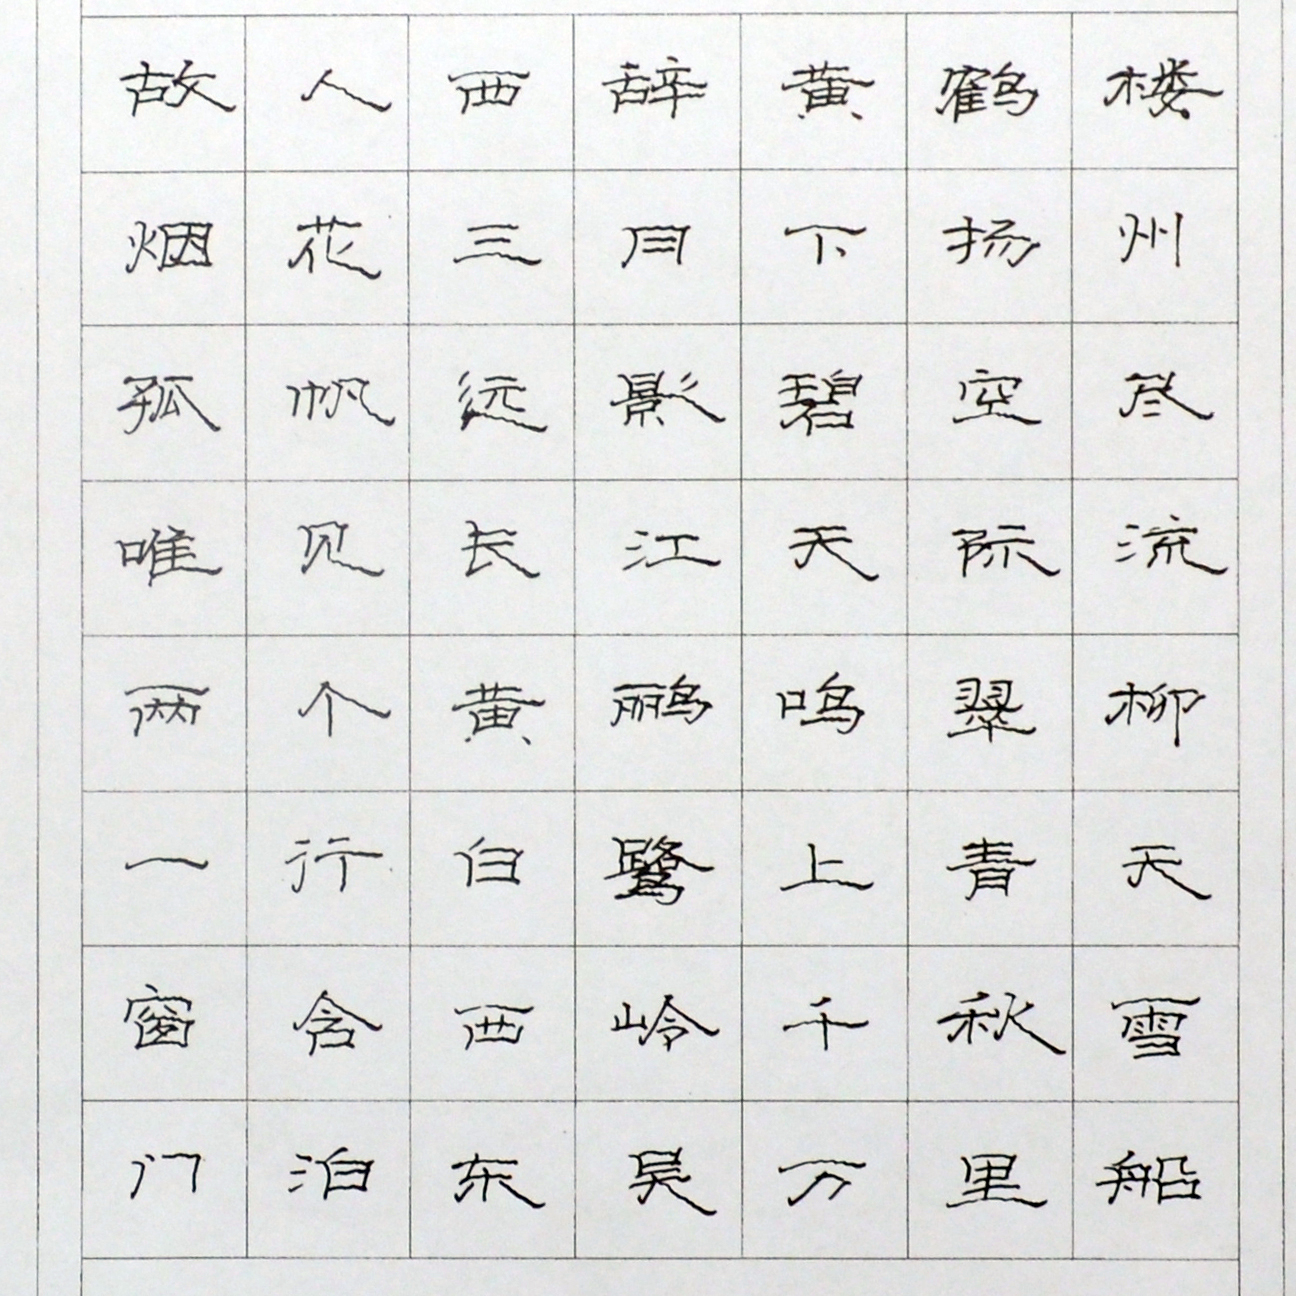 故人西辞黄鹤楼
烟花三月下扬州
孤帆远影碧空尽
唯见长江天际流
两个黄鹂鸣翠柳
一行白鹭上青天
窗含西岭千秋雪
门泊东吴万里船